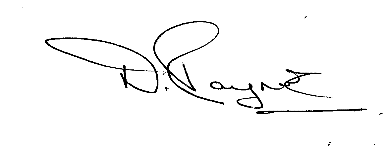 D. Payne